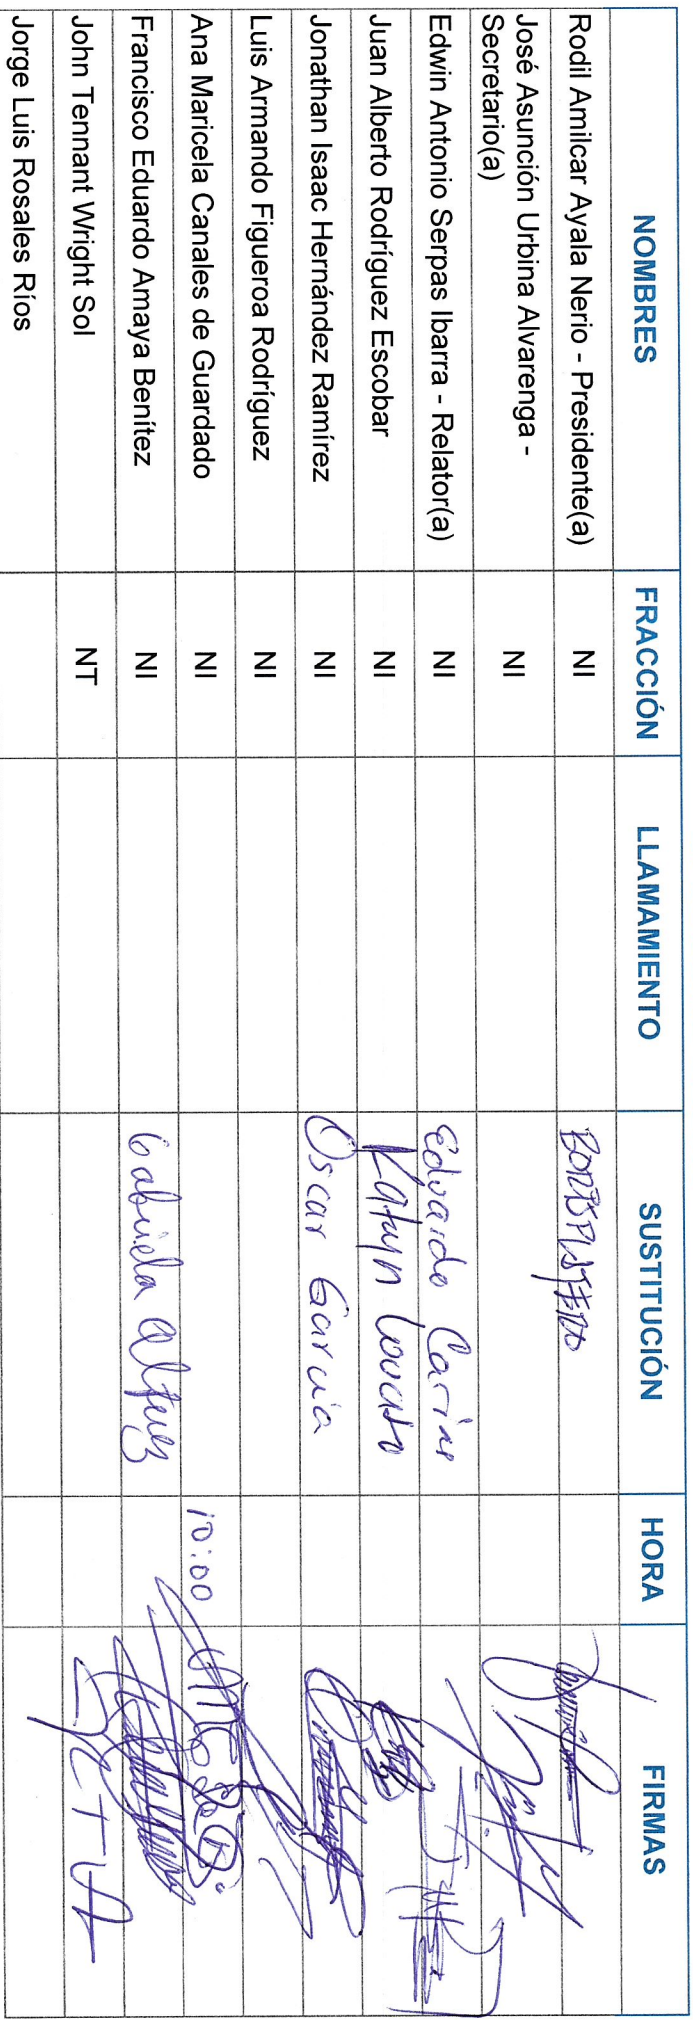 NOMBRES FRACCIÓN LLAMAMIENTO SUSTITUCIÓN HORA FIRMAS
Rodil Amilcar Ayala Nerio - Presidente(a) NI
José Asunción Urbina Alvarenga - NI
Secretario(a)
Edwin Antonio Serpas Ibarra - Relator(a) NI Eduardo Carias
Juan Alberto Rodríguez Escobar NI Katuyn
Jonathan Isaac Hernández Ramírez NI Oscar García
Luis Armando Figueroa Rodríguez NI
Ana Maricela Canales de Guardado NI 10:00
Francisco Eduardo Amaya Benítez NI Gabriela
John Tennant Wright Sol NT
Jorge Luis Rosales Ríos